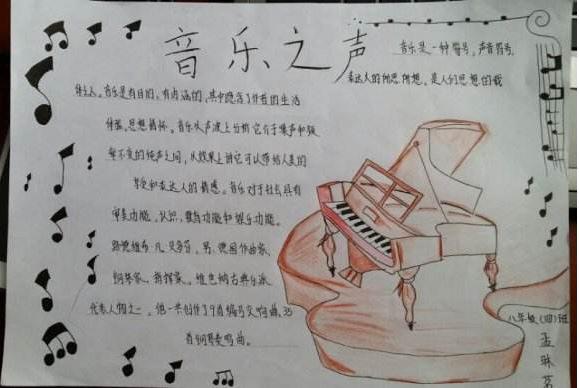 音乐之声
音乐是一种符号,声音符号,
表达人的所思所想。是人们思想的载
体之一。音乐是有目的,有内涵的,其中隐含了作者的生活
体验,思想情怀。音乐从声波上分析它介于噪声和频
率不变的纯声之间,从效果上讲它可以带给人美的
享受和表达人的情感。音乐对于社会具有
审美功能、认识、教育功能和娱乐功能。
路德维希·凡·贝多芬,男,德国作曲家,
钢琴家、指挥家。维也纳古典乐派
代表人物之一。他一共创作了9首编号交响曲、35
首钢琴奏鸣曲。
八年级(四)班
孟
琳